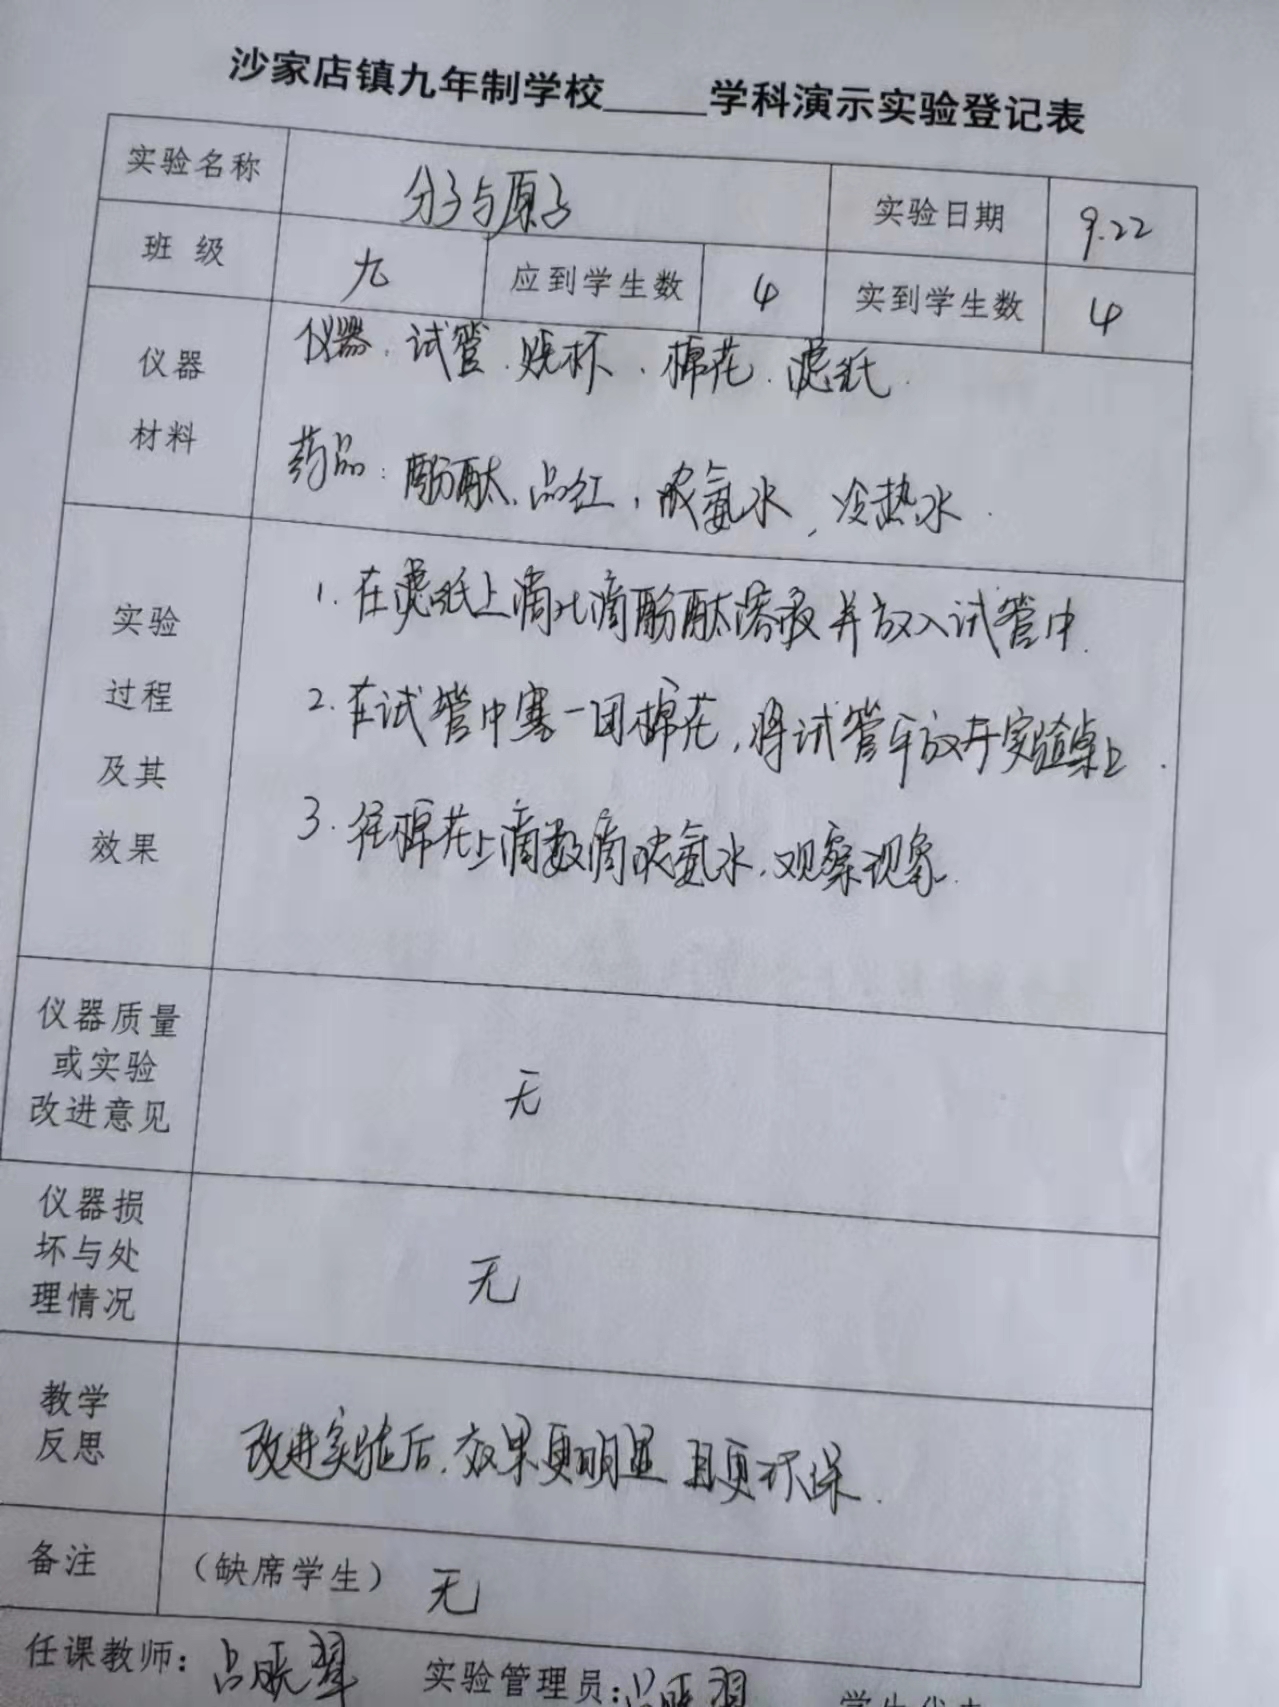 沙家店镇九年制学校_____学科演示实验登记表
实验名称 分子与原子 实验日期 9.22
班 级 九 应到学生数 4 实到学生数 4
仪器
材料
仪器：试管、烧杯、棉花、滤纸.
药品：酚酞、品红，浓氨水，冷热水.
实验
过程
及其
效果
1. 在滤纸上滴几滴酚酞溶液并放入试管中.
2. 在试管中塞一团棉花，将试管平放于实验桌上.
3. 往棉花上滴数滴浓氨水，观察现象.
仪器质量
或实验
改进意见
无
仪器损
坏与处
理情况
无
教学
反思
改进实验后，效果更明显 且更环保.
备注 （缺席学生） 无
任课教师： 实验管理员：